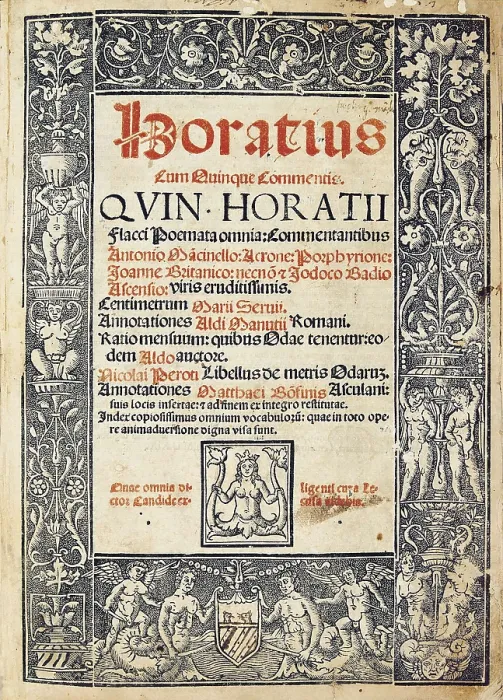 Horatius
Cum Quinque Commentis.
QVIN · HORATII
Flacci Poemata omnia: Commentantibus
Antonio Mãcinello: Acrone: Porphyrione:
Joanne Britanico: necnõ ⁊ Jodoco Badio
Ascensio: viris eruditissimis.
Centimetrum Marii Seruii.
Annotationes Aldi Manutii Romani.
Ratio mensuum: quibus Odae tenentur: eo-
dem Aldo auctore.
Nicolai Peroti Libellus de metris Odarũ.
Annotationes Matthaei Bõfinis Asculani:
suis locis insertae: ⁊ ad finem ex integro restitutae.
Index copiosissimus omnium vocabulorũ: quae in toto ope-
re animaduersione digna visa sunt.
Quae omnia
ligenti cura